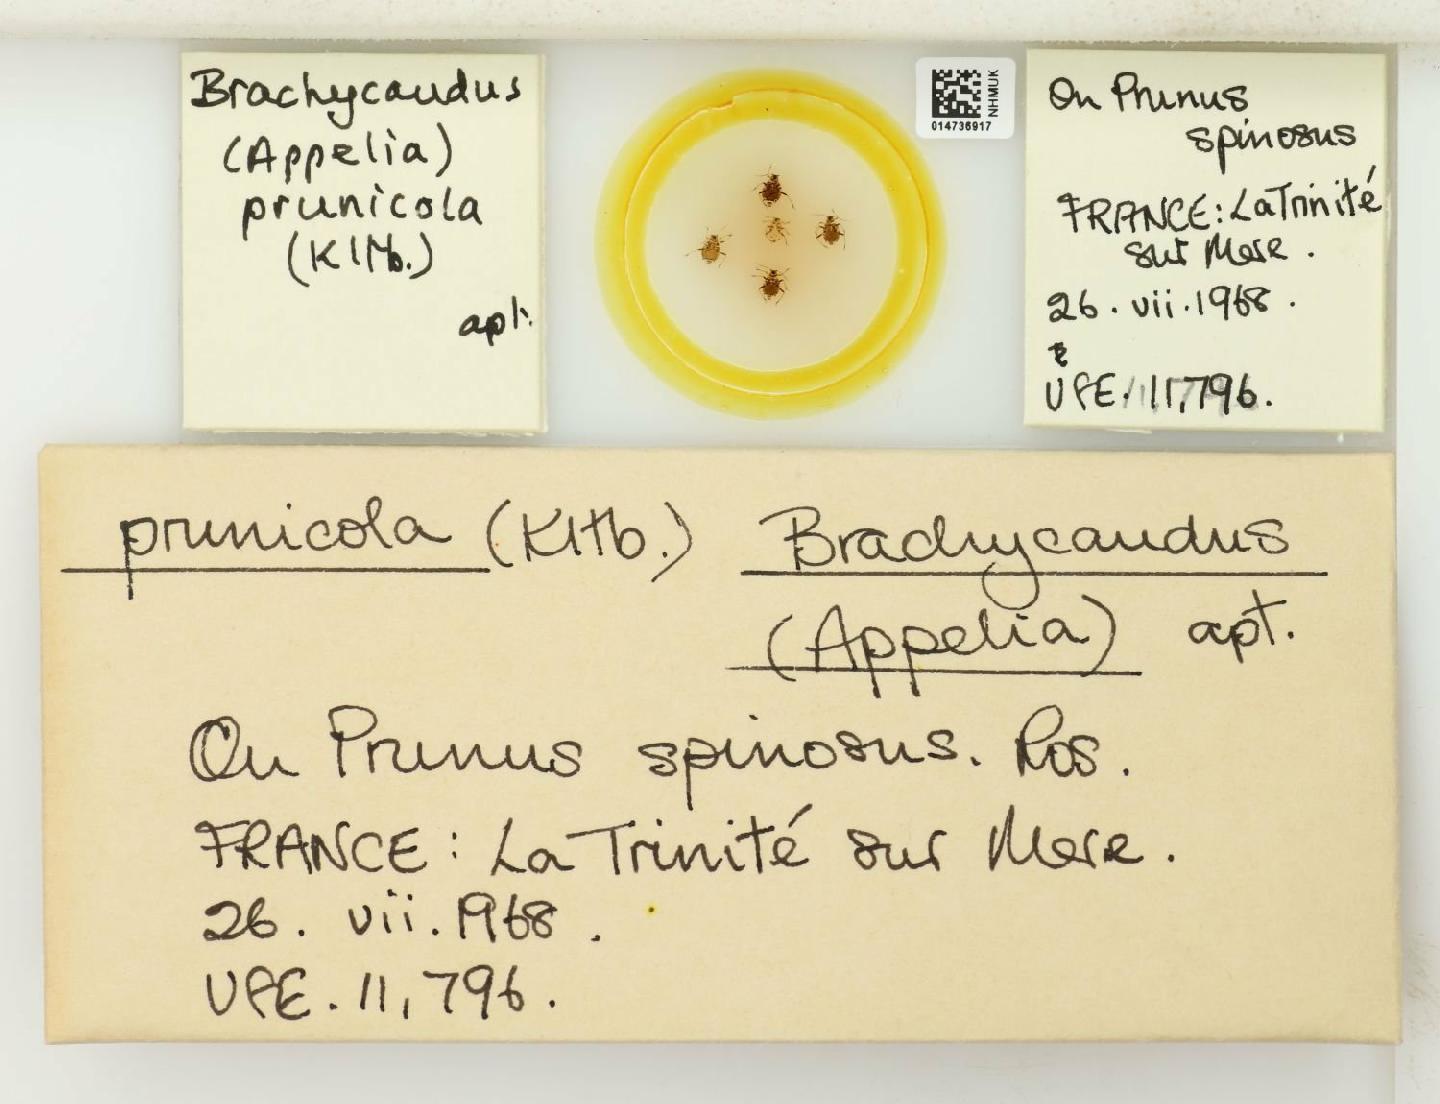 Brachycaudus
(Appelia)
prunicola
(Kltb.)
apt.
NHMUK
014736917
On Prunus
spinosus
FRANCE: La Trinité
sur Mere.
26. vii. 1968.
UPE. 11,796.
prunicola (Kltb.) Brachycaudus
(Appelia) apt.
On Prunus spinosus. Ros.
FRANCE: La Trinité sur Mere.
26. vii. 1968.
UPE. 11,796.